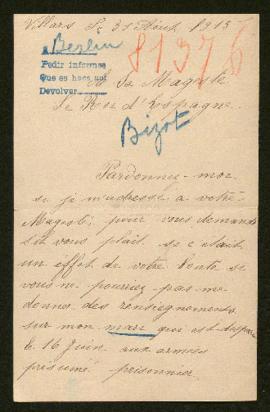 Villars 31 Août 1915
Berlin
81376
Pedir informe
Que es hace uni
Devolver
Sa Majesté
Le Roi d'Espagne.
Bizot
Pardonnez-moi
si je m'adresse à votre
Majesté, pour vous demande
s'il vous plait. se c'était
un effet de votre bonte se
vous ne pourriez pas me
donner des renseignements
sur mon mari qui est disparu
le 16 Juin aux armées
présumé prisonnier